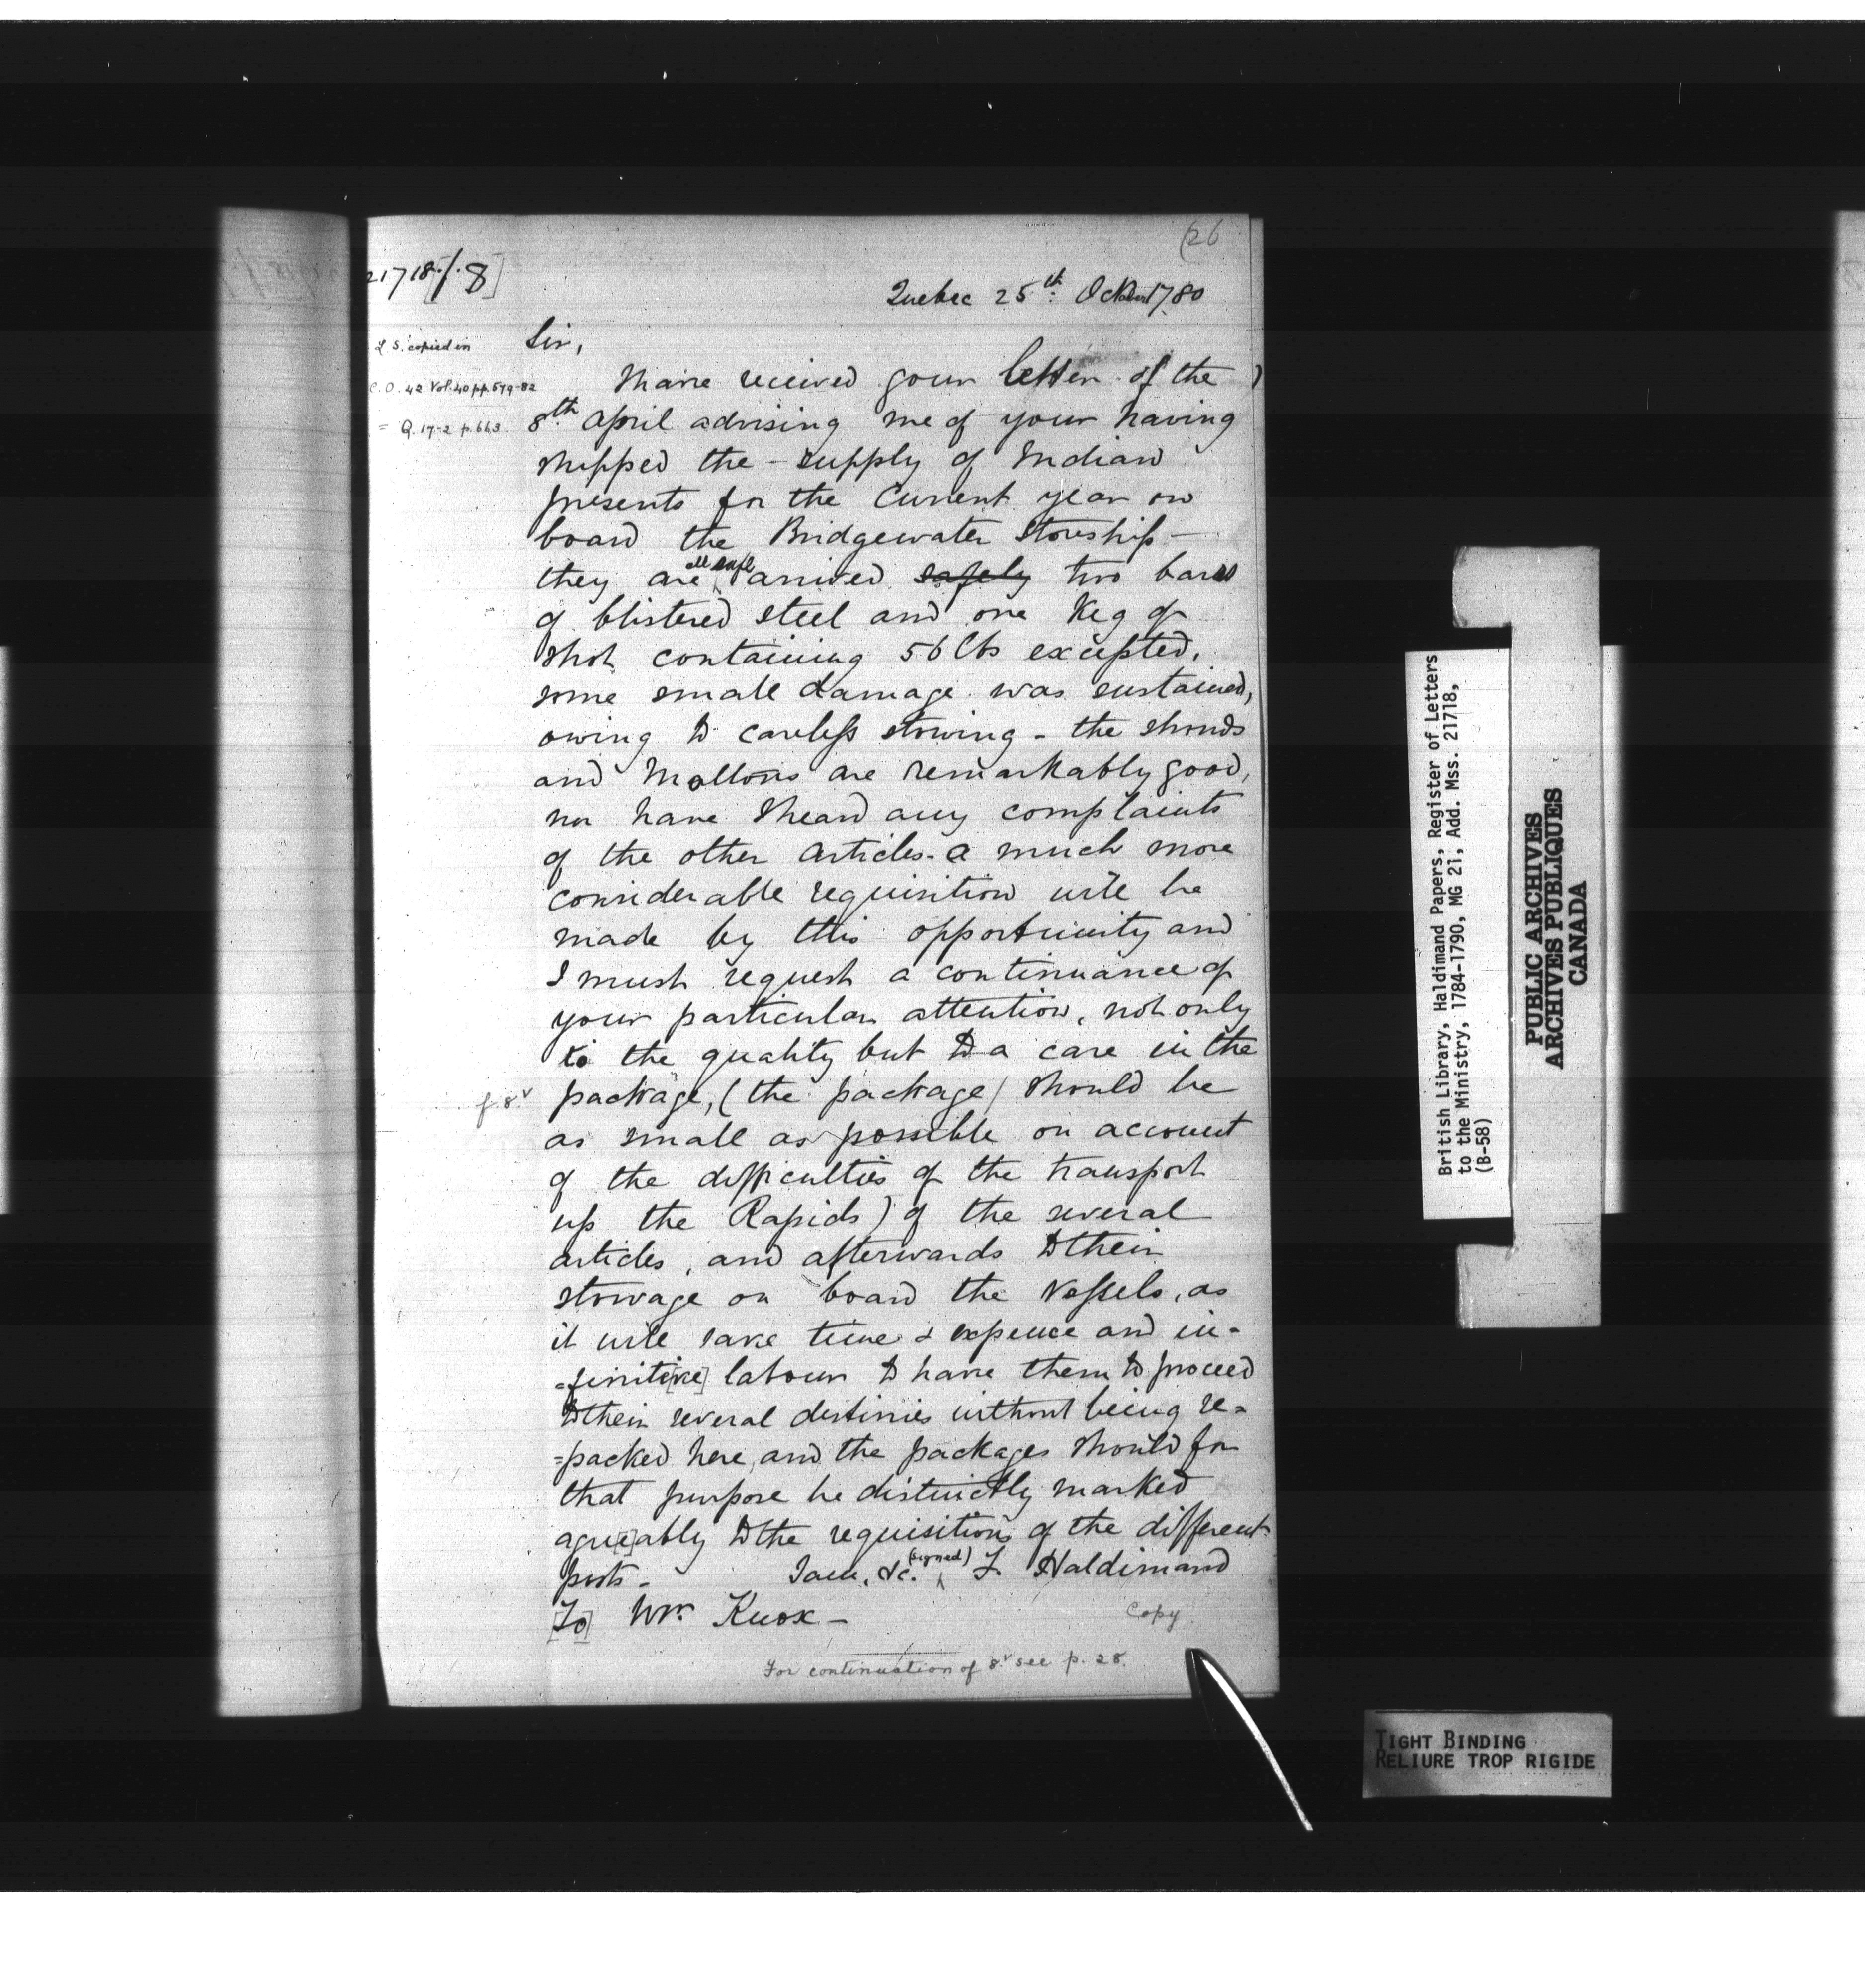 (26
21718 f. 8]
Quebec 25th. October 1780
L.S. copied in
C.O. 42 Vol. 40 pp. 579-82
= Q. 17-2 p. 663.
Sir,
I have received your letter of the
8th April advising me of your having
shipped the - supply of Indian
presents for the Current year on
board the Bridgewater Storeship -
they are all safe arrived safely two bars
of blistered steel and one Keg of
shot containing 56 lbs excepted,
some small damage was sustained,
owing to careless stowing - the strouds
and Moltons are remarkably good,
nor have I heard any complaints
of the other articles. a much more
considerable requisition will be
made by this opportunity and
I must request a continuance of
your particular attention, not only
to the quality but to a care in the
f. 8.v package, (the package) should be
as small as possible on account
of the difficulties of the transport
up the Rapids) of the several
articles, and afterwards to their
stowage on board the Vessels, as
it will save time & expence and in-
=finit[ive] labour to have them to proceed
to their several destinies without being re=
=packed here, and the packages should for
that purpose be distinctly marked
agre[e]ably to the requisitions of the different
posts - I am, &c. (signed) F. Haldimand
[To] Wm. Knox -
Copy.
For continuation of 8.v see p. 28.
British Library, Haldimand Papers, Register of Letters
to the Ministry, 1784-1790, MG 21, Add. Mss. 21718,
(B-58)
PUBLIC ARCHIVES
ARCHIVES PUBLIQUES
CANADA
TIGHT BINDING
RELIURE TROP RIGIDE